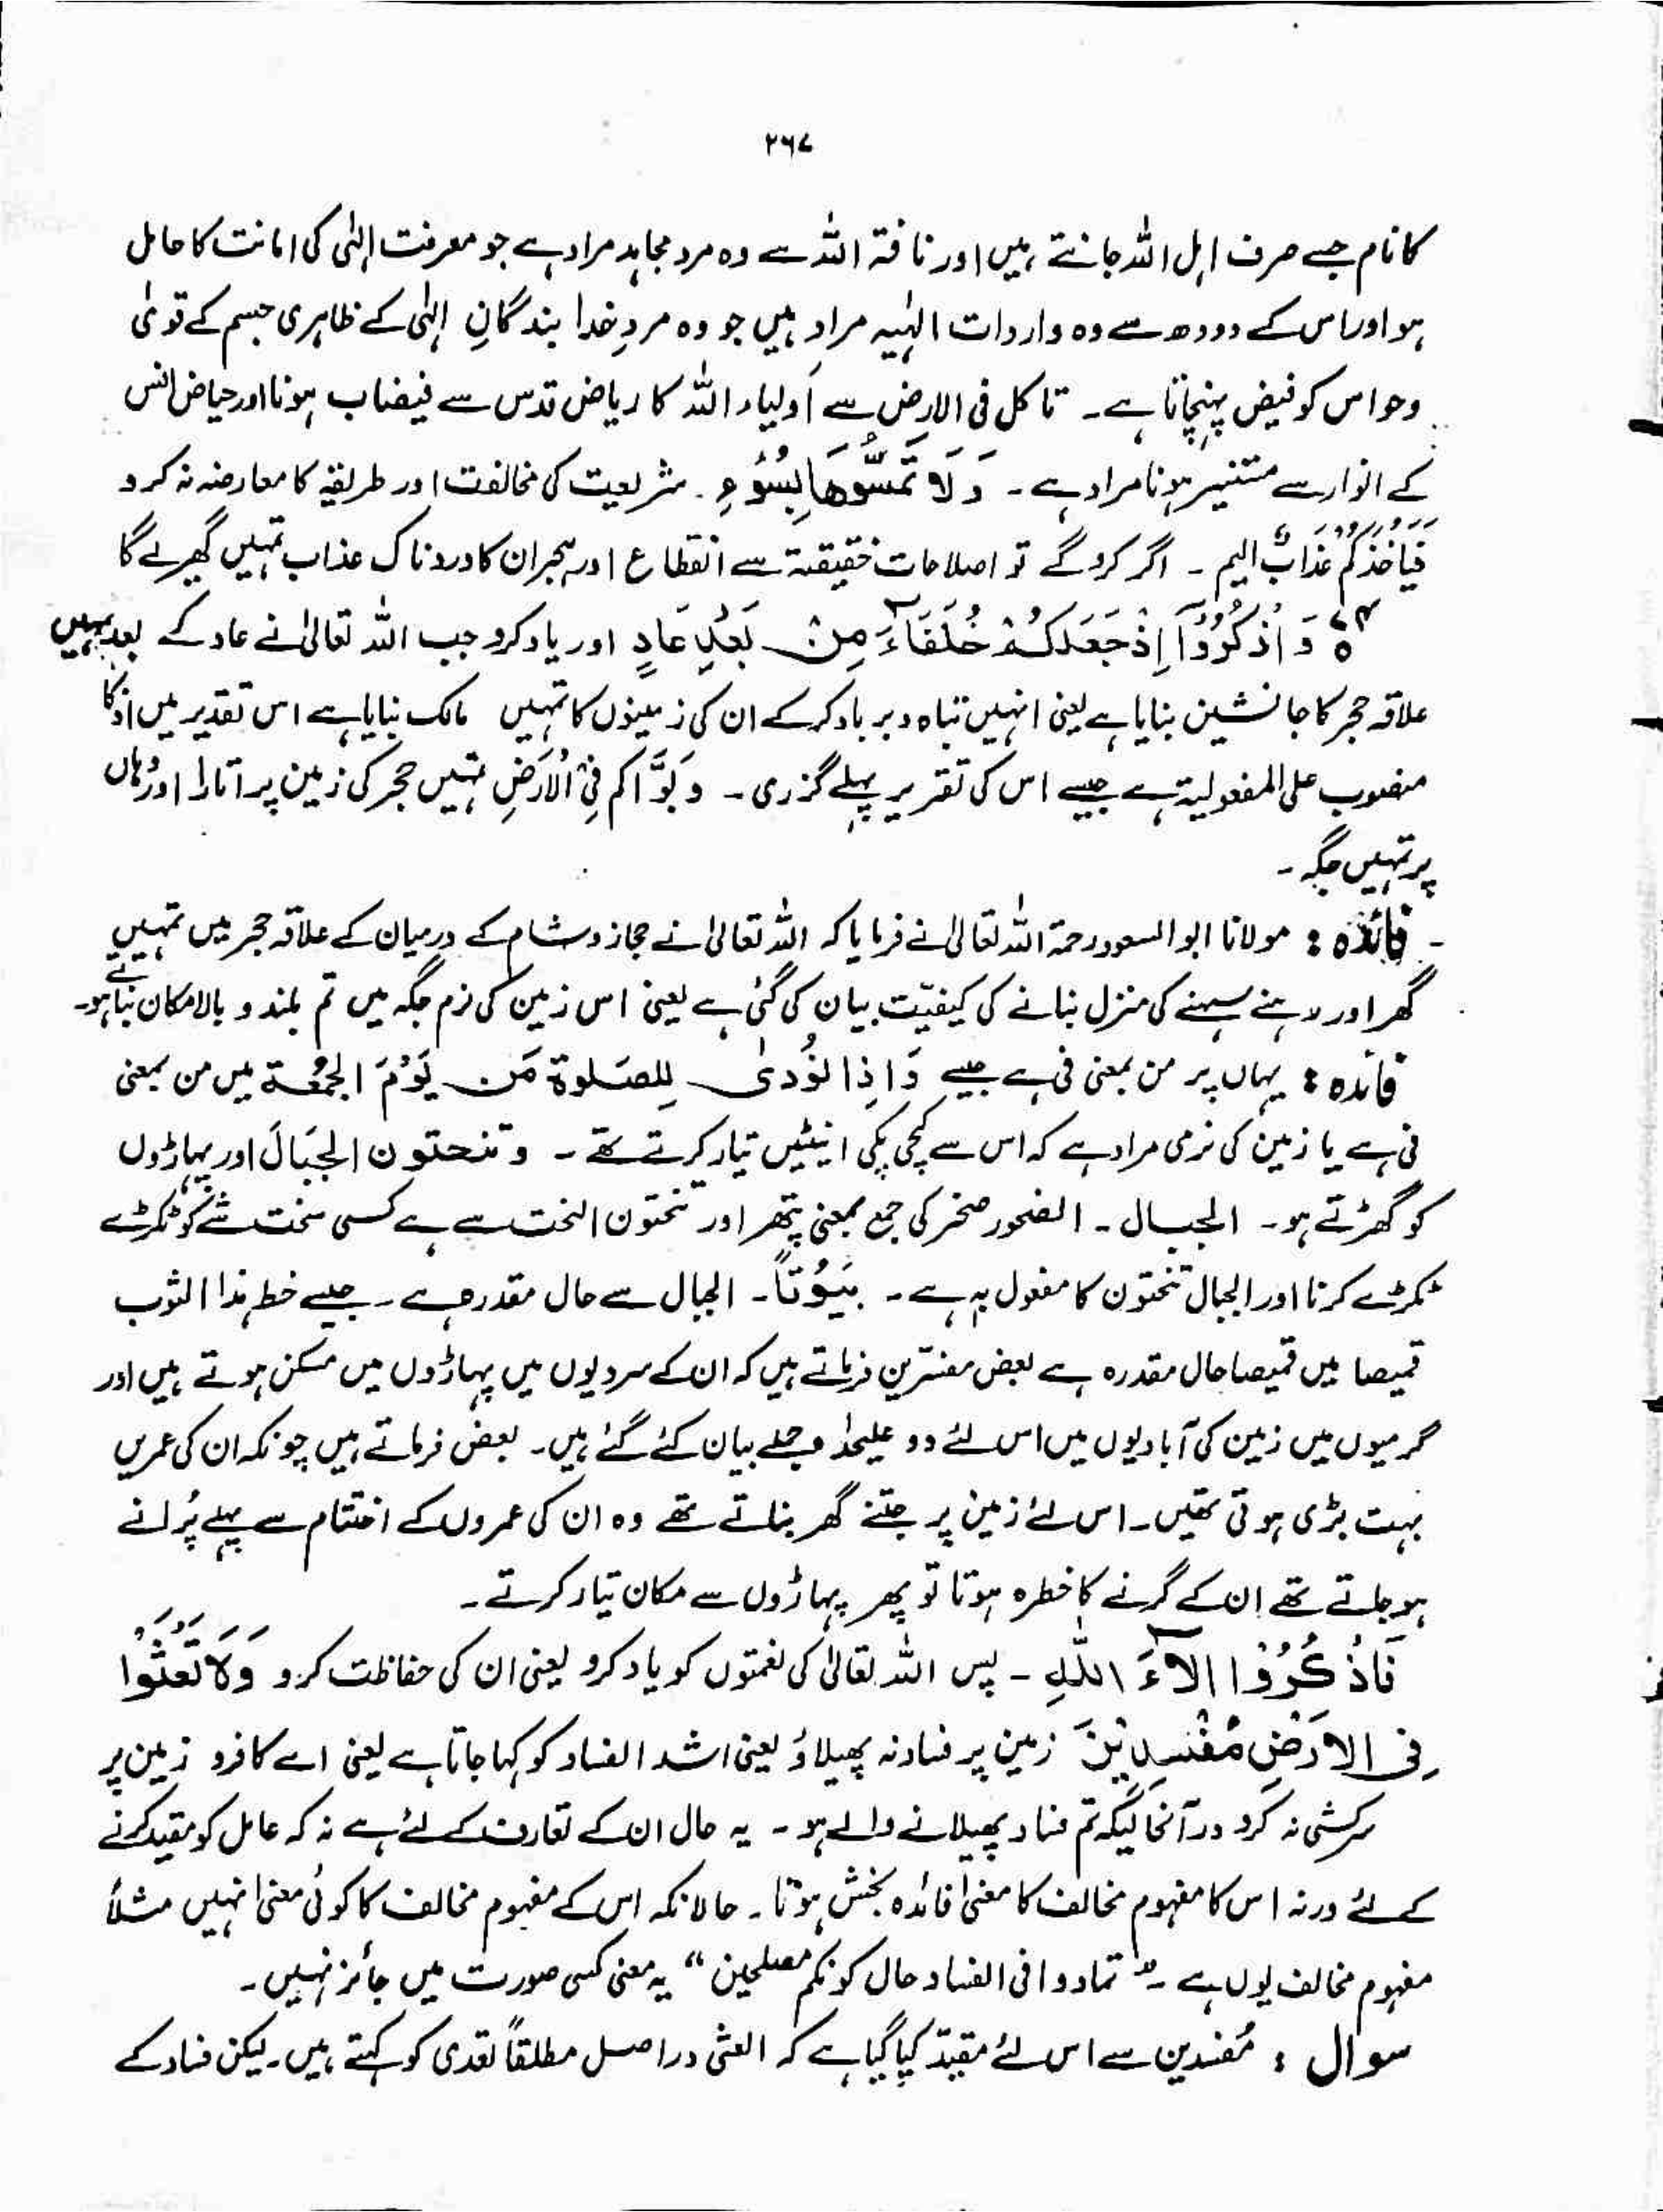 ۲۶۷
کا نام جسے صرف اہل اللہ جانتے ہیں اور ناقۃ اللہ سے وہ مرد مجاہد مراد ہے جو معرفت الٰہی کی امانت کا حامل
ہو اور اس کے دودھ سے وہ واردات الٰہیہ مراد ہیں جو وہ مردِ خدا بندگانِ الٰہی کے ظاہری جسم کے قویٰ
وحواس کو فیض پہنچاتا ہے ۔ تاکل فی الارض سے اَولیاء اللہ کا ریاض قدس سے فیضیاب ہونا اور حیاض انس
کے انوار سے مستنیر ہونا مراد ہے ۔ وَلَا تَمَسُّوهَا بِسُوْٓءٍ ۔ شریعت کی مخالفت اور طریقۃ کا معارضہ نہ کرو
فَیَاْخُذَكُمْ عَذَابٌ الیم ۔ اگر کرو گے تو اصلاحات حقیقۃ سے انقطاع اور ہجران کا دردناک عذاب تمہیں گھیرلے گا
وَ اذْكُرُوْٓا اِذْ جَعَلَكُمْ خُلَفَآءَ مِنْۢ بَعْدِ عَادٍ اور یاد کرو جب اللہ تعالیٰ نے عاد کے بعد تمہیں
علاقہ حجر کا جانشین بنایا ہے یعنی انہیں تباہ وبرباد کرکے ان کی زمینوں کا تمہیں مالک بنایا ہے اس تقدیر میں اذ کا
منصوب علی المفعولیۃ ہے جیسے اس کی تقریر پہلے گزری ۔ وَ بَوَّاکم فِی الْاَرْضِ تمہیں حجر کی زمین پر اتارا اور وہاں
پر تمہیں جگہ ۔
۔ فائدہ : مولانا ابوالسعود رحمۃ اللہ تعالیٰ نے فرمایا کہ اللہ تعالیٰ نے حجاز وشام کے درمیان کے علاقہ حجر میں تمہیں
گھر اور رہنے سہنے کی منزل بنانے کی کیفیّت بیان کی گئی ہے یعنی اس زمین کی نرم جگہ میں تم بلند و بالا مکان بناتے ہو۔
فائدہ : یہاں پر من بمعنی فی ہے جیسے وَاِذَا نُوْدِیَ لِلصَّلٰوۃِ مَن یَوْمَ الجُمُعَۃ میں من بمعنی
فی ہے یا زمین کی نرمی مراد ہے کہ اس سے کچی پکی اینٹیں تیار کرتے تھے ۔ وتنحتون الجِبَالَ اور پہاڑوں
کو گھڑتے ہو ۔ الجبال ۔ الصخور صخر کی جمع بمعنی پتھر اور تنحتون النحت سے ہے کسی سخت شے کو ٹکڑے
ٹکڑے کرنا اور الجبال تنحتون کا مفعول بہٖ ہے ۔ بُیُوْتًا ۔ الجبال سے حال مقدرہ ہے ۔ جیسے خط ہذا الثوب
قمیصا میں قمیصا حال مقدرہ ہے بعض مفسّرین فرماتے ہیں کہ ان کے سردیوں میں پہاڑوں میں مسکن ہوتے ہیں اور
گرمیوں میں زمین کی آبادیوں میں اس لئے دو علیحدٰہ جملے بیان کئے گئے ہیں ۔ بعض فرماتے ہیں چونکہ ان کی عمریں
بہت بڑی ہوتی تھیں ۔ اس لئے زمین پر جتنے گھر بناتے تھے وہ ان کی عمروں کے اختتام سے پہلے پُرانے
ہوجاتے تھے ان کے گرنے کا خطرہ ہوتا تو پھر پہاڑوں سے مکان تیار کرتے ۔
فَاذْكُرُوْا اٰلَآءَ اللّٰهِ ۔ پس اللہ تعالیٰ کی نعمتوں کو یاد کرو یعنی ان کی حفاظت کرو وَلَا تَعْثَوْا
فِی الاَرْضِ مُفْسِدِیْنَ زمین پر فساد نہ پھیلاؤ یعنی اشد الفساد کو کہا جاتا ہے یعنی اے کافرو زمین پر
سرکشی نہ کرو درآنحالیکہ تم فساد پھیلانے والے ہو ۔ یہ حال ان کے تعارف کے لئے ہے نہ کہ عامل کو مقید کرنے
کے لئے ورنہ اس کا مفہوم مخالف کا معنیٰ فائدہ بخش ہوتا ۔ حالانکہ اس کے مفہوم مخالف کا کوئی معنیٰ نہیں مثلاً
مفہوم مخالف یوں ہے ۔ " تمادوا فی الفساد حال کونکم مصلحین " یہ معنی کسی صورت میں جائز نہیں ۔
سوال : مُفسدین سے اس لئے مقیدّ کیا گیا ہے کہ العثی دراصل مطلقاً تعدی کو کہتے ہیں ۔ لیکن فساد کے